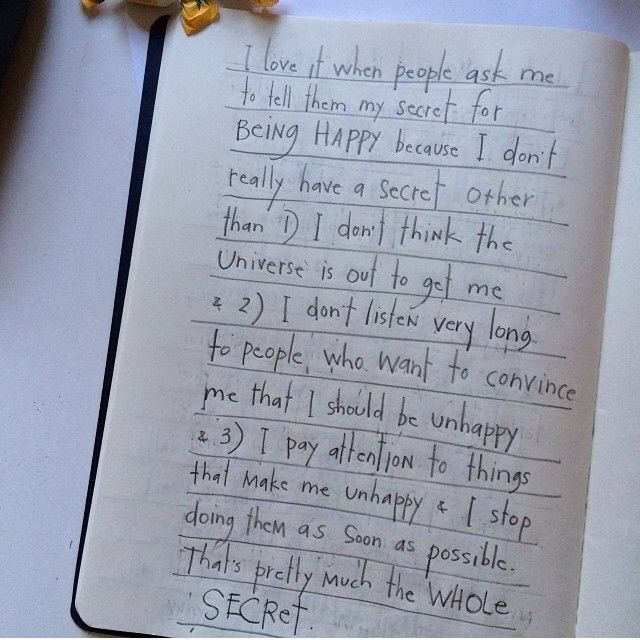 I love it when people ask me
to tell them my secret for
BEING HAPPY because I don't
really have a secret other
than 1) I don't think the
Universe is out to get me
& 2) I don't listen very long
to people who want to convince
me that I should be unhappy
& 3) I pay attention to things
that make me unhappy & I stop
doing them as soon as possible.
That's pretty much the WHOLE
SECRET.